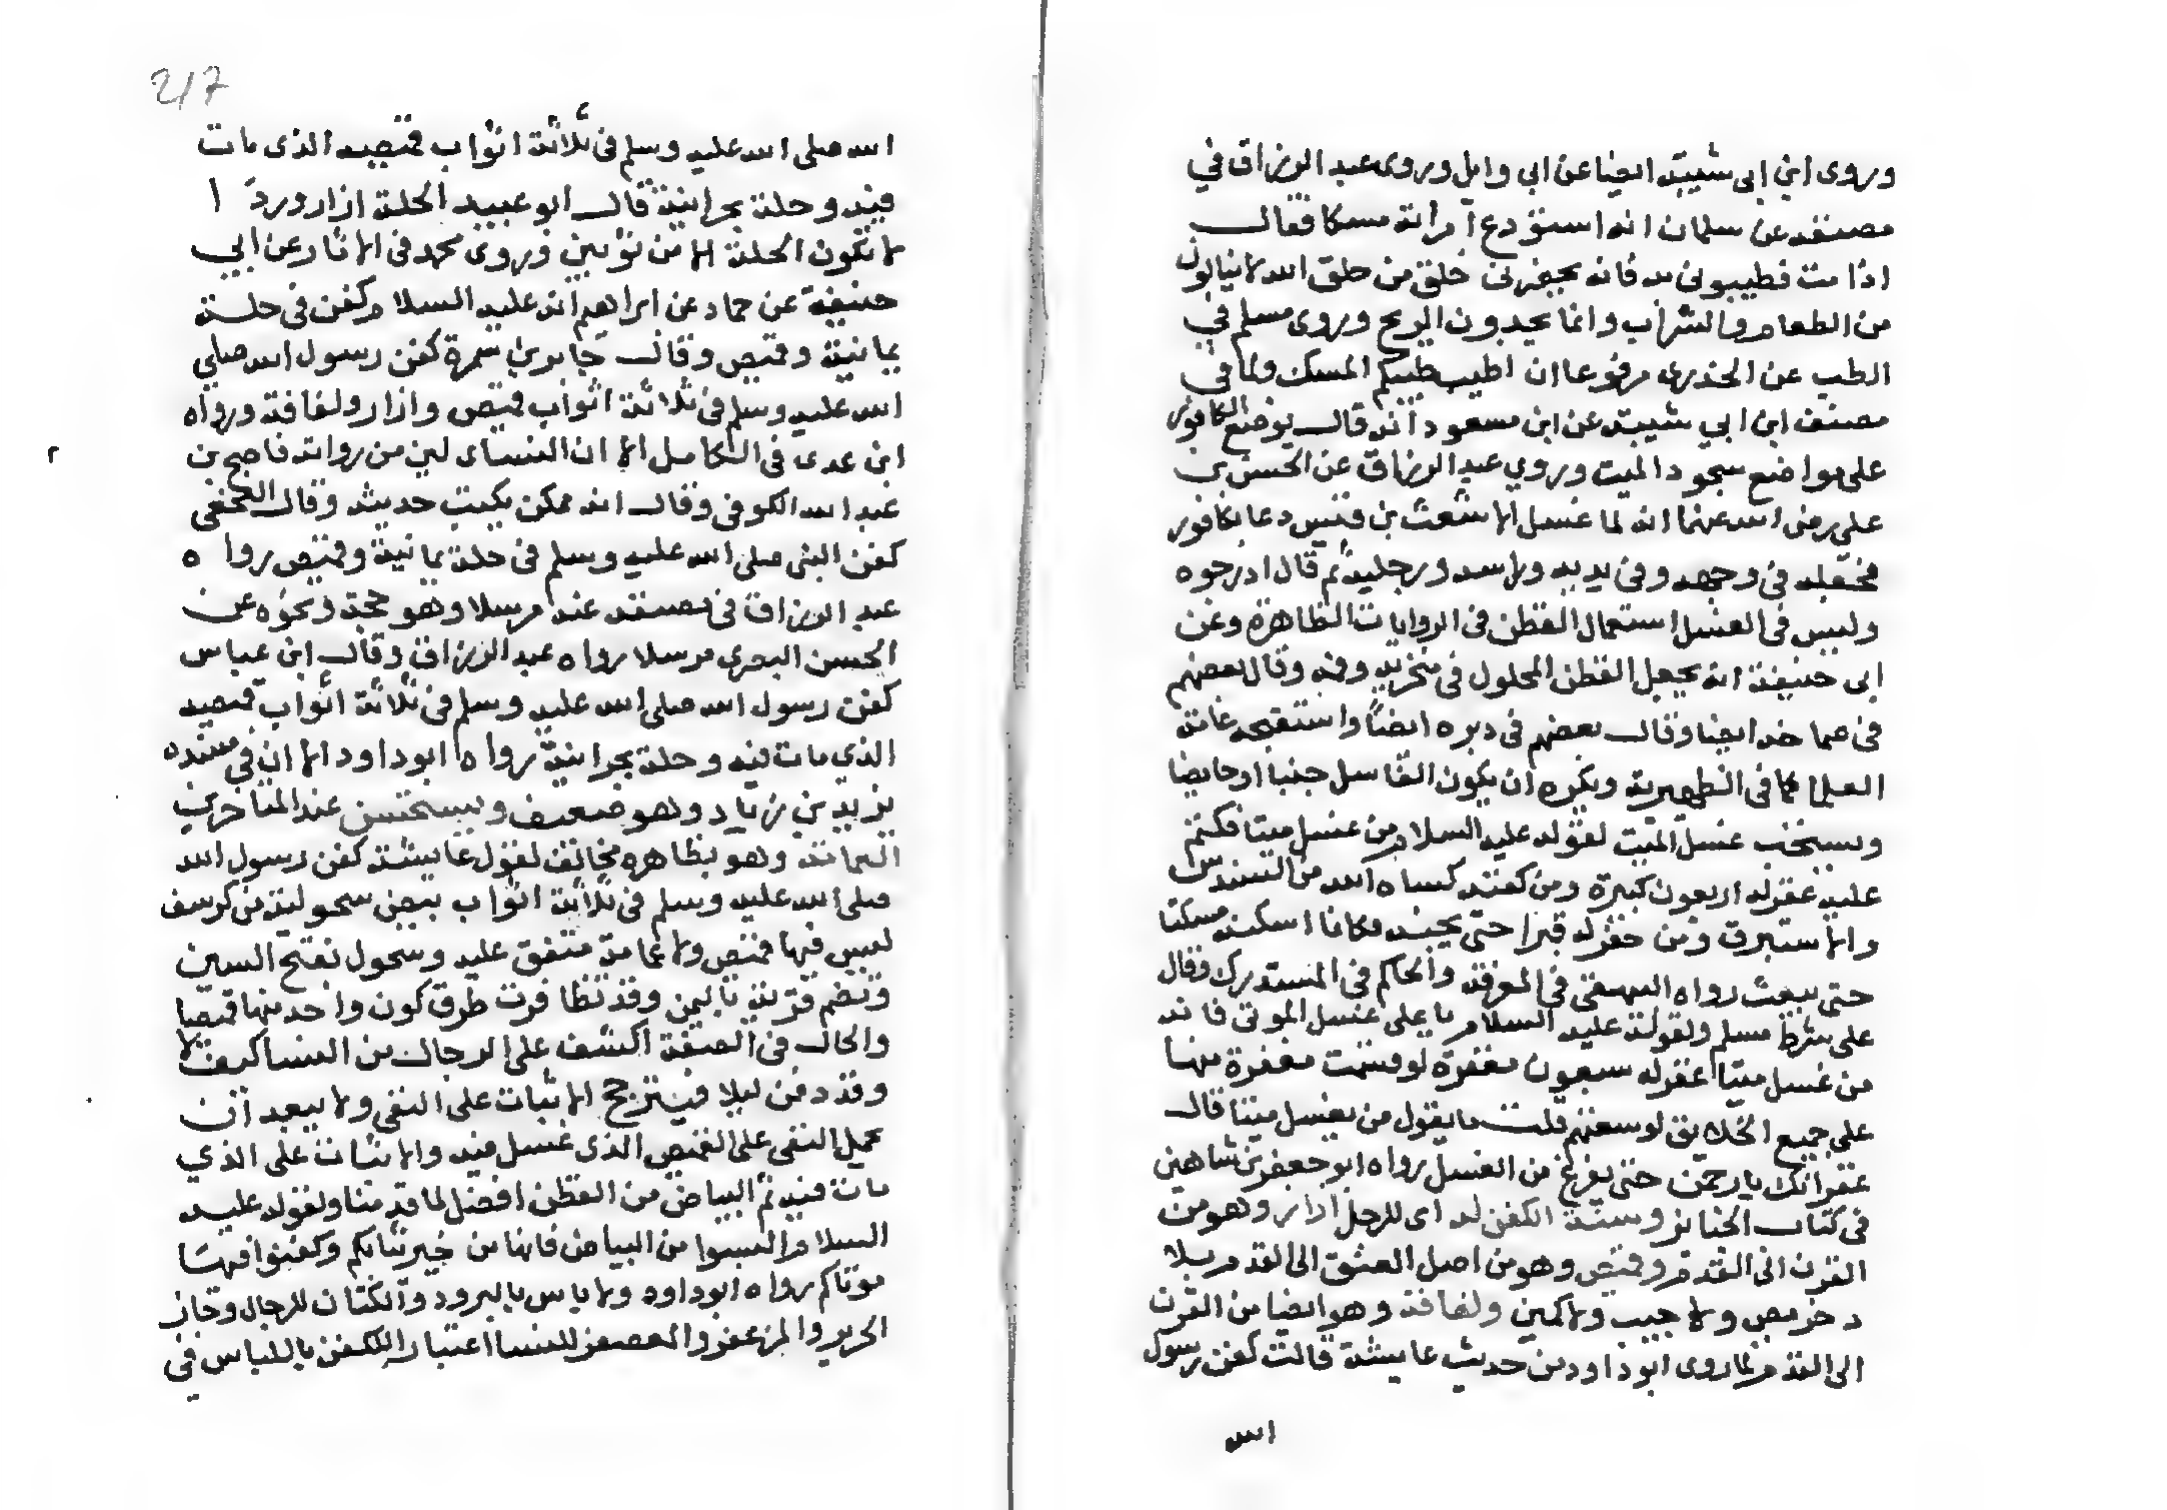 وروى ابن ابى شيبة ايضا عن ابى وايل وروى عبد الرزاق في
مصنفه عن سلمان انه استودع امراته مسكا فقال
اذا مت فطيبونى به فانه يحضرنى خلق من خلق الله لا ينالون
من الطعام والشراب وانما يجدون الريح وروى مسلم في
الطب عن الخدرى مرفوعا ان اطيب طيبكم المسك ولما في
مصنف ابن ابي شيبة عن ابن مسعود انه قال يوضع الكافور
على مواضع سجود الميت وروي عبد الرزاق عن الحسن بن
على رضى الله عنهما انه لما غسل الاشعث بن قيس دعا بكافور
فجعله فى وجهه وفى يديه وراسه ورجليه ثم قال ادرجوه
وليس فى الغسل استعمال القطن فى الروايات الظاهرة وعن
ابى حنيفة انه يجعل القطن المحلول فى منخريه وفمه وقال بعضهم
فى صماخه ايضا وقال بعضهم فى دبره ايضا واستقبحه عامة
العلما كما فى الظهيرية ويكره ان يكون الغاسل جنبا او حايضا
ويستحب غسل الميت لقوله عليه السلام من غسل ميتا فكتم
عليه غفر له اربعون كبيرة ومن كفنه كساه الله من السندس
والاستبرق ومن حفر له قبرا حتى يجنه فكانما اسكنه مسكنا
حتى يبعث رواه البيهقى في المعرفة والحاكم فى المستدرك وقال
على شرط مسلم ولقوله عليه السلام يا على غسل الموتى فانه
من غسل ميتا غفر له سبعون مغفرة لو قسمت مغفرة منها
على جميع الخلايق لوسعتهم قلت ما يقول من يغسل ميتا قال
غفرانك يا رحمن حتى يفرغ من الغسل رواه ابو جعفر بن شاهين
فى كتاب الجنايز وسنة الكفن له اى للرجل ازار وهو من
القرن الى القدم وقميص وهو من اصل العنق الى القدم بلا
دخريص ولا جيب ولا كمين ولفافة وهو ايضا من القرن
الى القدم لما روى ابو داود من حديث عايشة قالت كفن رسول
الله
217
الله صلى الله عليه وسلم فى ثلاثة اثواب قميصه الذى مات
فيه وحلة نجرانية قال ابو عبيد الحلة ازار وردا
لا تكون الحلة الا من ثوبين وروى محمد فى الاثار عن ابي
حنيفة عن حماد عن ابراهيم انه عليه السلام كفن فى حلة
يمانية وقميص وقال جابر بن سمرة كفن رسول الله صلى
الله عليه وسلم فى ثلاثة اثواب قميص وازار ولفافة ورواه
ابن عدى فى الكامل الا ان النساى لين من رواته ناصح بن
عبد الله الكوفى وقال انه ممكن يكتب حديثه وقال النخعى
كفن النبى صلى الله عليه وسلم فى حلة يمانية وقميص رواه
عبد الرزاق فى مصنفه عنه مرسلا وهو حجة ونحوه عن
الحسن البصرى مرسلا رواه عبد الرزاق وقال ابن عباس
كفن رسول الله صلى الله عليه وسلم فى ثلاثة اثواب قميصه
الذي مات فيه وحلة نجرانية رواه ابو داود الا ان فى سنده
يزيد بن زياد وهو ضعيف ويستحسن عند المتاخرين
العمامة وهو بظاهره مخالف لقول عايشة كفن رسول الله
صلى الله عليه وسلم فى ثلاثة اثواب بيض سحولية من كرسف
ليس فيها قميص ولا عمامة متفق عليه وسحول بفتح السين
وتضم قرية باليمن وقد تظافرت طرق كون واحد منها قميصا
والحال فى الصفة اكشف على الرجال من النسا كيف لا
وقد دفن ليلا فيترجح الاثبات على النفى ولا يبعد ان
يحمل النفى على القميص الذى غسل فيه والاثبات على الذي
مات فيه ثم البياض من القطن افضل لما قدمنا ولقوله عليه
السلام البسوا من البياض فانها من خير ثيابكم وكفنوا فيها
موتاكم رواه ابو داود ولا باس بالبرود والكتان للرجال وجاز
الحرير والمزعفر والمعصفر للنسا اعتبارا للكفن باللباس في